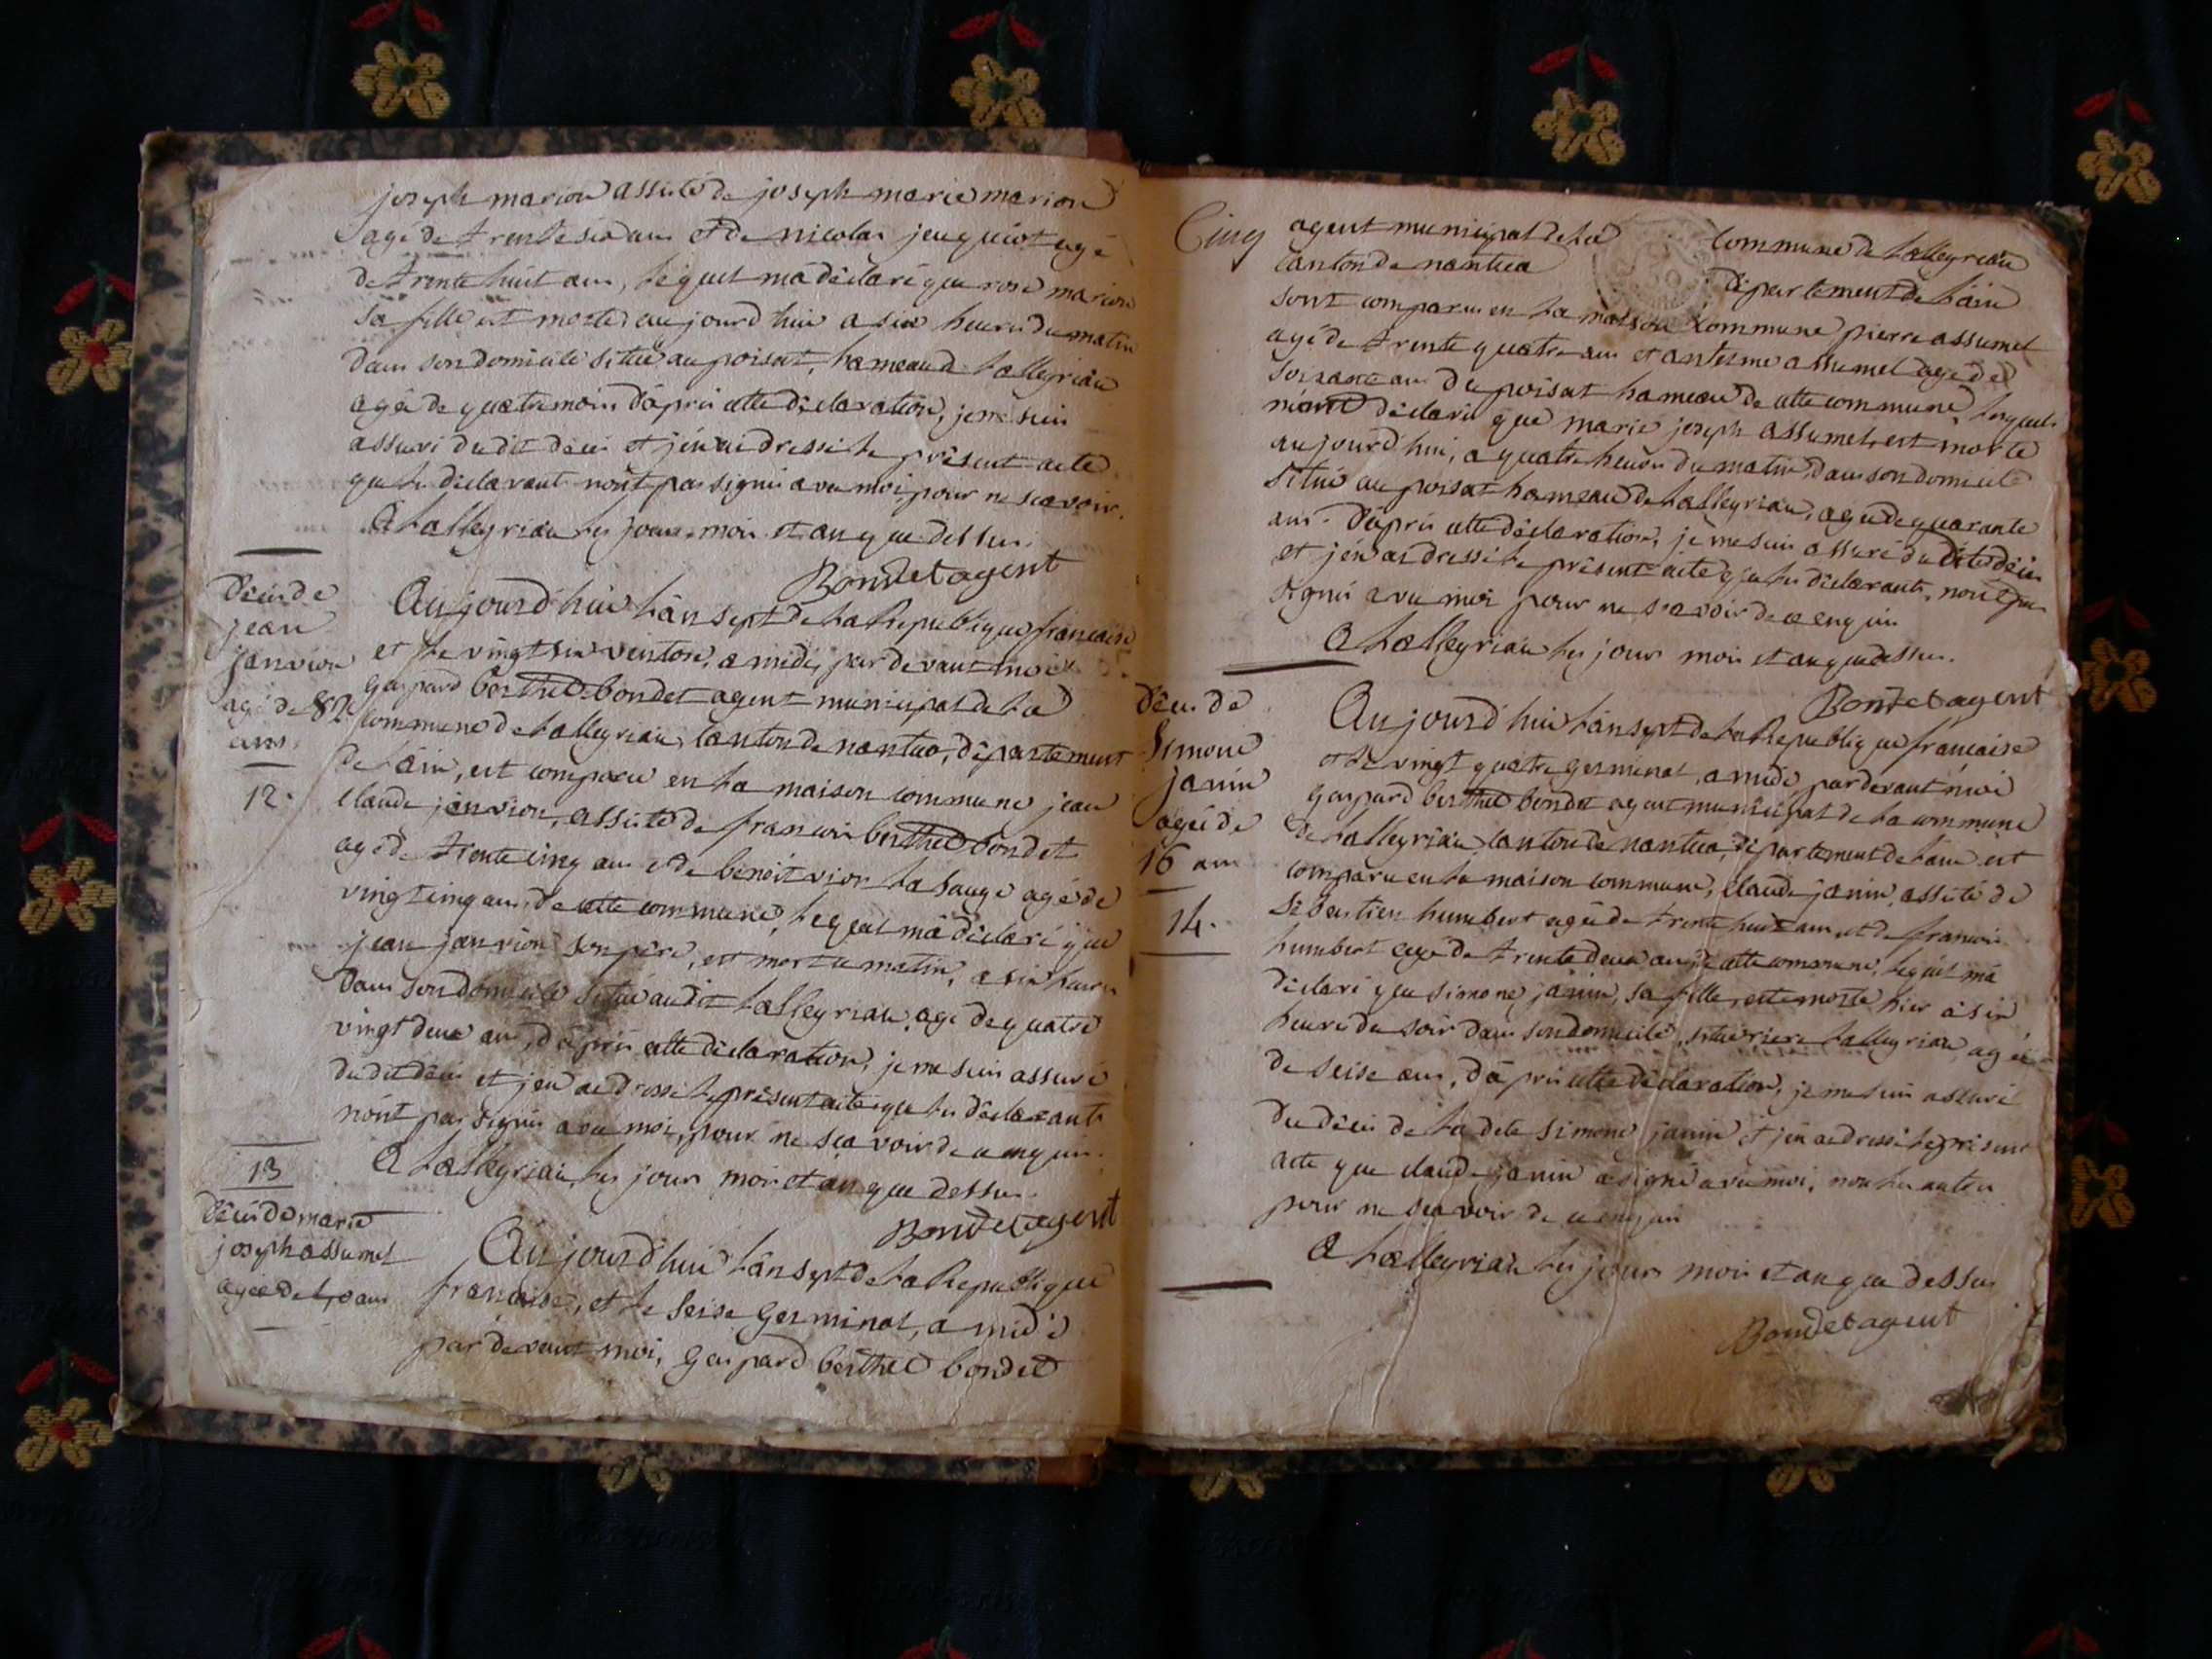 joseph marion assisté de joseph marie marion
agé de trente six ans et de nicolas jeuquiot agé
de trente huit ans, lequel m'a déclaré que rose marion
sa fille est morte aujourd'hui a six heures du matin
dans son domicile situé au poisat, hameau de Lalleyriau
agée de quatre mois d'après cette déclaration, je me suis
assuré du dit décès et j'en ai dressé le présent acte
que les déclarants n'ont pas signés avec moi, pour ne scavoir.
A Lalleyriau les jour mois et an que dessus.
Bondet agent
Décès de
jean
janvion
agé de 82
ans.
12.
Aujourd'hui l'an sept de la Republique francaise
et le vingt six ventose, a midi, pardevant moi
gaspard berthet-bondet agent municipal de la
commune de Lalleyriau, canton de nantua, département
de l'ain, est comparu en la maison commune jean
claude janvion, assisté de francois berthet bondet
agé de trente cinq ans et de benoit vion la sauge agé de
vingt cinq ans, de cette commune, lequel m'a déclaré que
jean janvion son père, est mort ce matin, a six heures
dans son domicile situé au dit Lalleyriau, agé de quatre
vingt deux ans, d'après cette déclaration, je me suis assuré
du dit décès et j'en ai dressé le présent acte que les déclarants
n'ont pas signés avec moi, pour ne scavoir de ce enquis.
A Lalleyriau, les jour mois et an que dessus.
Bondet agent
13
Décès de marie
joseph assumel
agée de 40 ans
Aujourd'hui l'an sept de la Republique
francaise, et le seise germinal, a midi
pardevant moi, gaspard berthet bondet
Cinq
agent municipal de la commune de Lalleyriau
canton de nantua département de l'ain
sont comparus en la maison commune pierre assumel
agé de trente quatre ans et antelme assumel agé de
soixante ans du poisat hameau de cette commune, lesquels
m'ont déclaré que marie joseph assumel, est morte
aujourd'hui, a quatre heures du matin, dans son domicile
situé au poisat hameau de Lalleyriau, agée de quarante
ans. D'après cette déclaration, je me suis assuré du dit décès
et j'en ai dressé le présent acte que les déclarants, n'ont pas
signés avec moi pour ne scavoir de ce enquis
A Lalleyriau les jour mois et an que dessus.
Bondet agent
Décès de
Simone
janin
agée de
16 ans
14.
Aujourd'hui l'an sept de la Republique francaise
et le vingt quatre germinal, a midi, pardevant moi
gaspard berthet bondet agent municipal de la commune
de Lalleyriau, canton de nantua, département de l'ain est
comparu en la maison commune, claude janin, assisté de
sébastien humbert agé de trente huit ans et de francois
humbert agé de trente deux ans, de cette commune, lequel m'a
déclaré que simone janin, sa fille, est morte hier à six
heures du soir dans son domicile, situé riere Lalleyriau agée
de seise ans, d'après cette déclaration, je me suis assuré
du décès de la dite simone janin et j'en ai dressé le présent
acte que claude janin a signé avec moi, non les autres
pour ne scavoir de ce enquis
A Lalleyriau les jour mois et an que dessus
Bondet agent